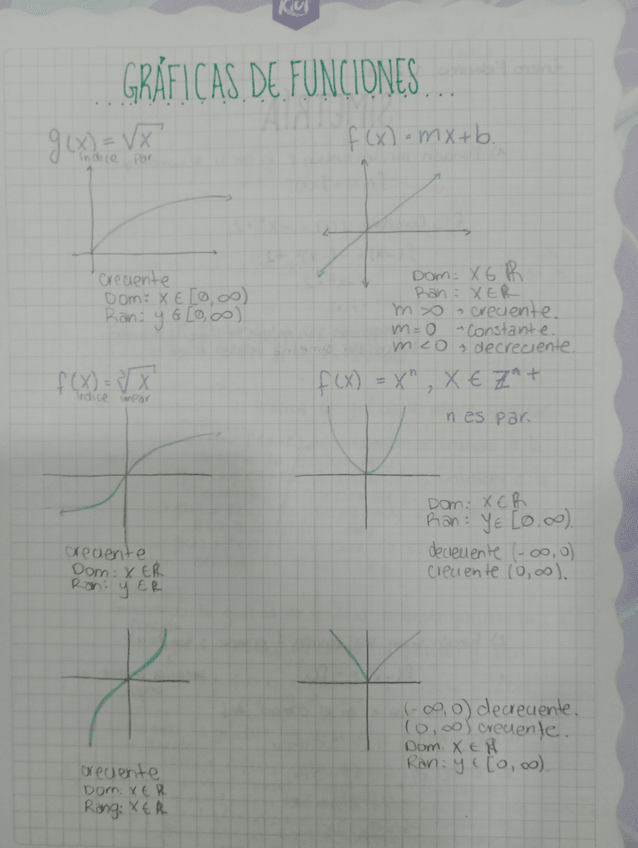 KIUT
GRÁFICAS DE FUNCIONES...
g(x) = √x
índice par
creciente
Dom: x ∈ [0,∞)
Ran: y ∈ [0,∞)
f(x) = mx+b.
Dom: x ∈ ℝ
Ran: x ∈ ℝ
m >0 → creciente.
m=0 → constante.
m <0 → decreciente.
f(x) = ∛x
índice impar
creciente
Dom: x ∈ ℝ
Ran: y ∈ ℝ
f(x) = xⁿ, x ∈ ℤⁿ +
n es par.
Dom: x ∈ ℝ
Ran: y ∈ [0.∞)
decreciente (-∞,0)
creciente (0,∞).
creciente
Dom: x ∈ ℝ
Rang: x ∈ ℝ
(-∞,0) decreciente.
(0,∞) creciente.
Dom. x ∈ ℝ
Ran: y ∈ [0,∞).